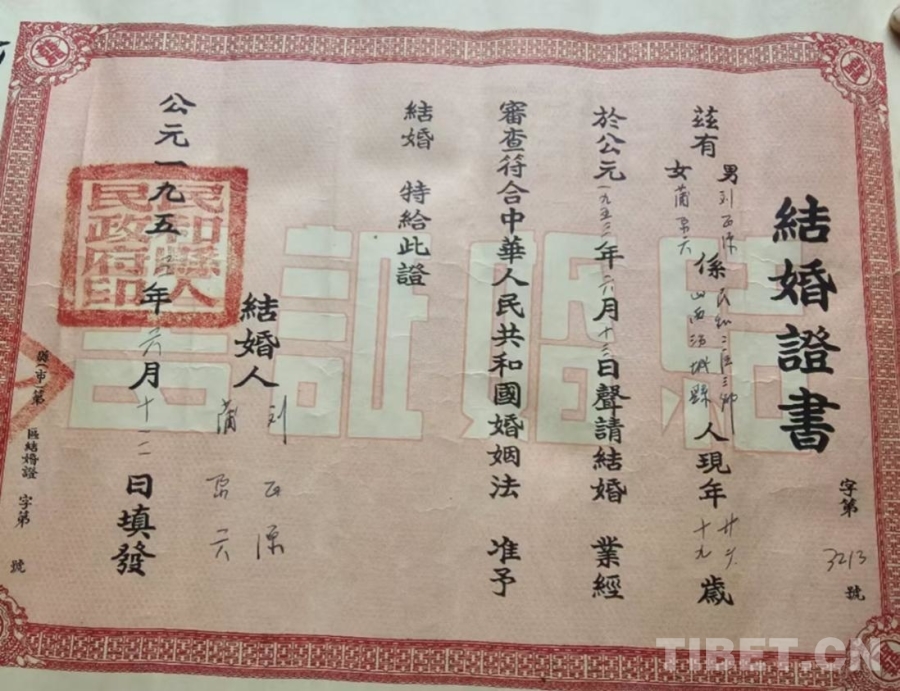 結婚證書
字第 3213 號
茲有
男刘
女蒲
係
山西
縣
人現年
十九
歲
於公元一九五 年六月十 日聲請結婚 業經
審查符合中華人民共和國婚姻法 准予
結婚 特給此證
結婚人
刘
蒲
公元一九五 年六月十 日填發
民和縣人
民政府印
縣(市)第 區結婚證 字第 號
結婚証書
TIBET.CN